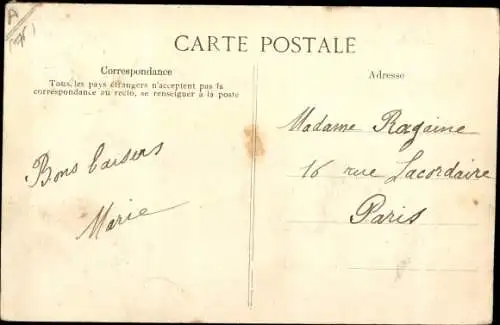 A
CARTE POSTALE
Correspondance
Tous les pays étrangers n'acceptent pas la
correspondance au recto, se renseigner à la poste
Bons baisers
Marie
Adresse
Madame Ragaine
16 rue Lacordaire
Paris